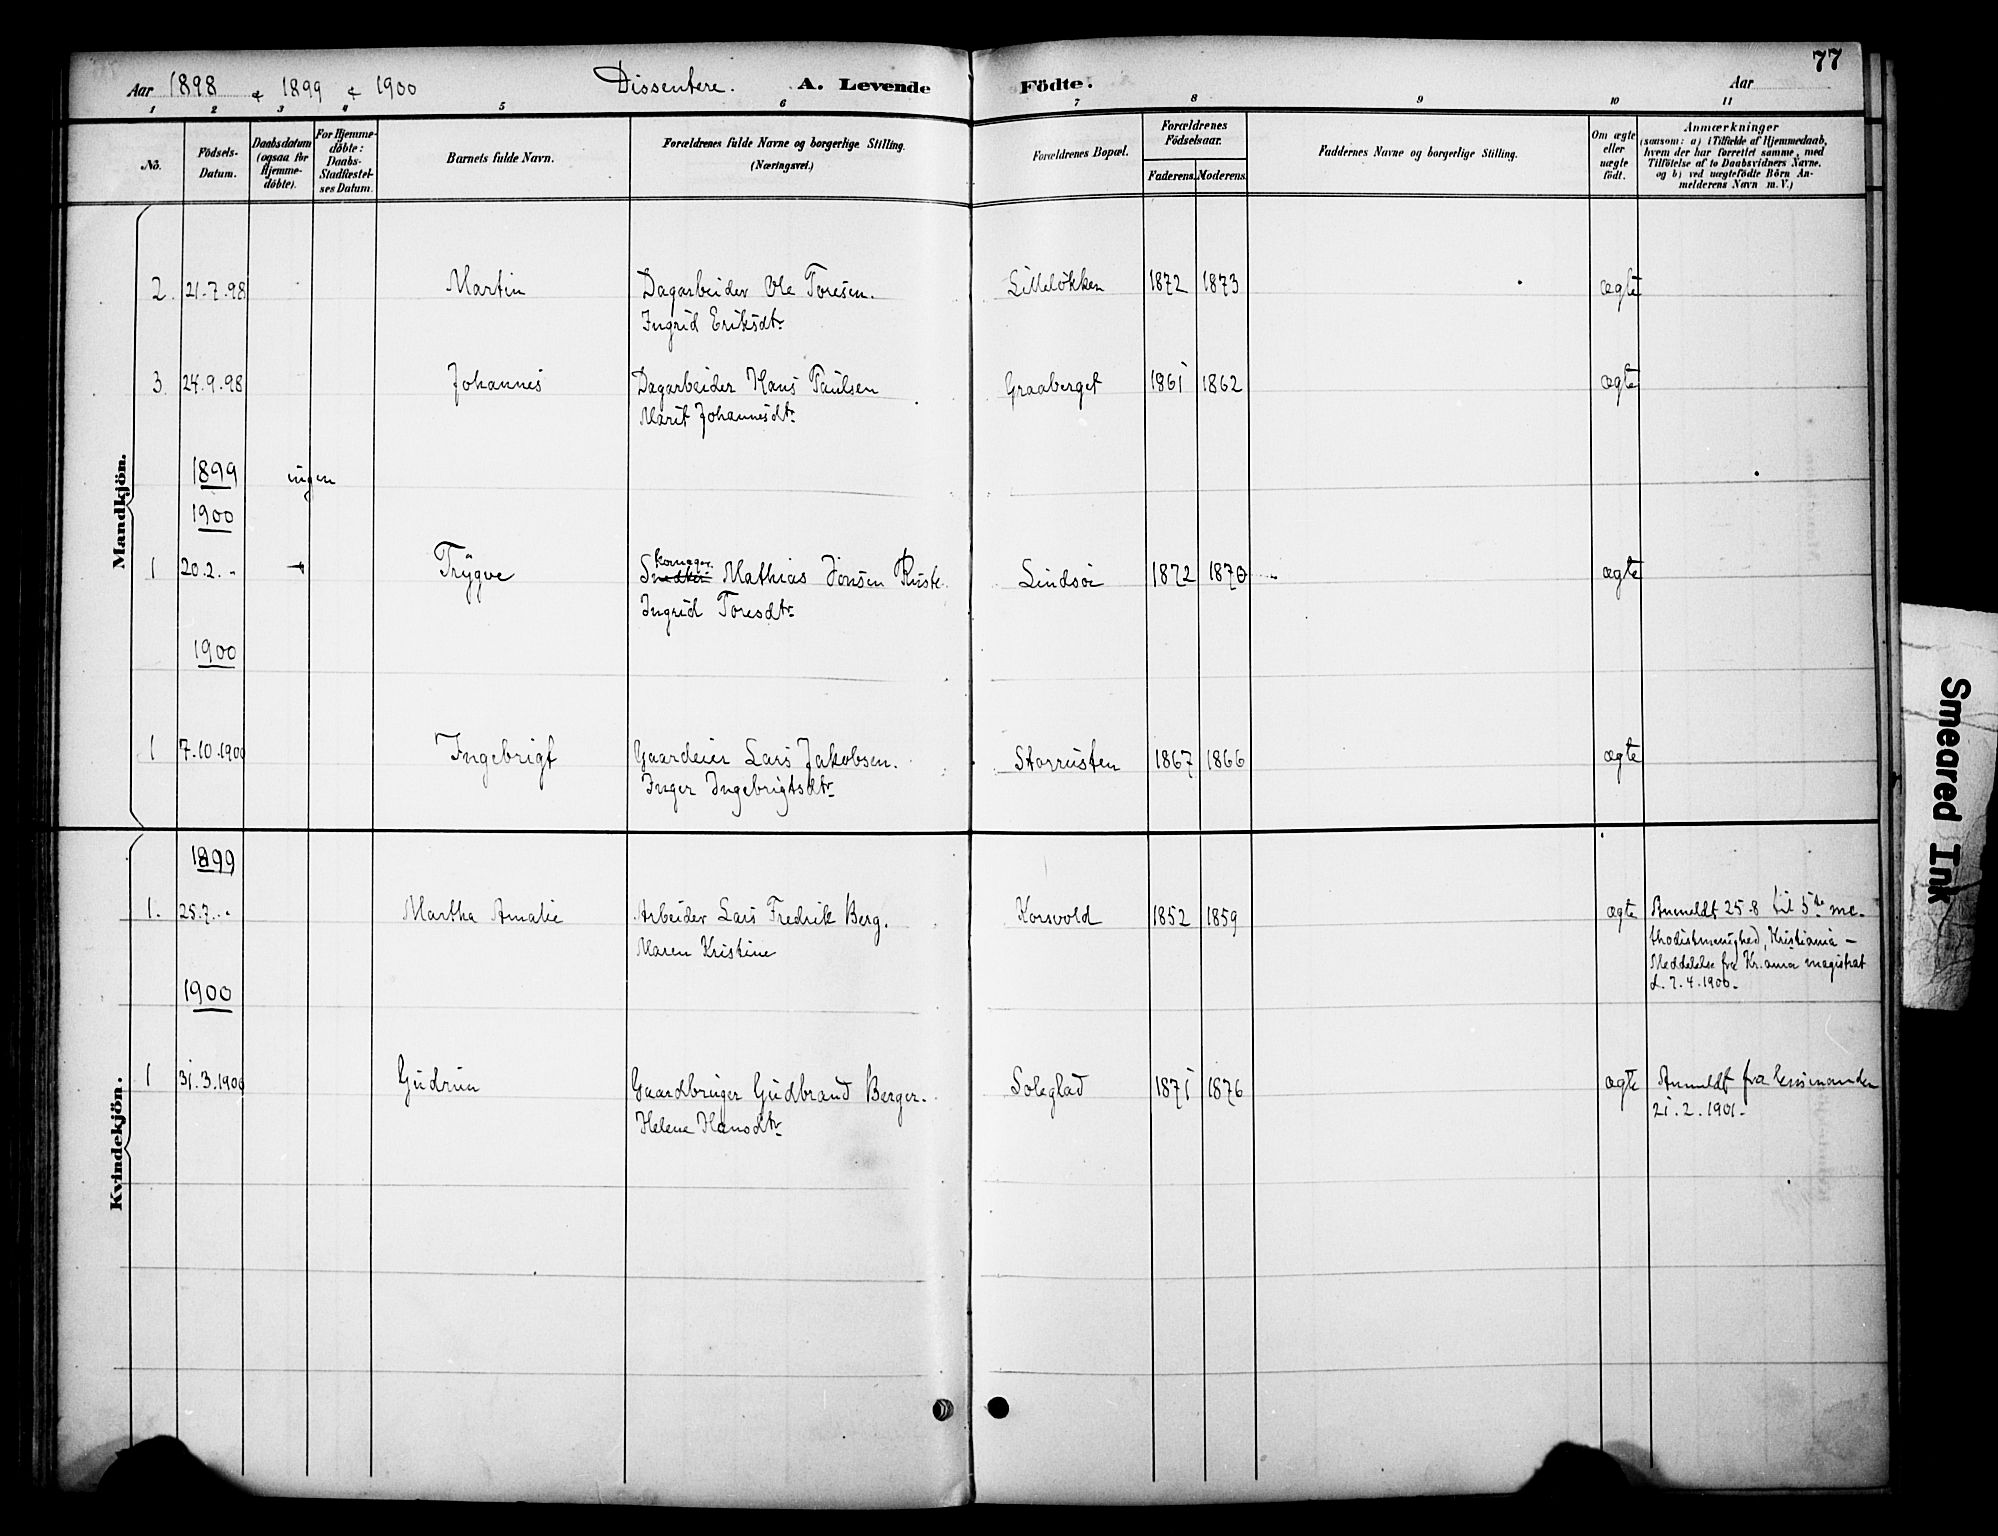 77
Aar 1898 & 1899 & 1900 Dissentere. A. Levende Födte. Aar
1 2 3 4 5 6 7 8 9 10 11
No.
Födsels-
Datum.
Daabsdatum
(ogsaa for
Hjemme-
döbte).
For Hjemme-
döbte:
Daabs-
Stadfæstel-
ses Datum.
Barnets fulde Navn.
Forældrenes fulde Navne og borgerlige Stilling.
(Næringsvei.)
Forældrenes Bopæl.
Forældrenes
Födselsaar.
Faderens. Moderens.
Faddernes Navne og borgerlige Stilling.
Om ægte
eller
uægte
födt.
Anmærkninger
(saasom: a) i Tilfælde af Hjemmedaab,
hvem der har forrettet samme, med
Tilföielse af to Daabsvidners Navne,
og b) ved uægtefödte Börn An-
melderens Navn m. V.)
Mandkjön.
2. 21.7.98 Martin Dagarbeider Ole Toresen. Lilleløkken 1872 1873 ægte
Ingrid Eriksdtr
3 24.9.98 Johannes Dagarbeider Hans Paulsen Graaberget 1861 1862 ægte
Marit Johannesdtr
1899 ingen
1900
1 20.2. - Trygve Skomager Mathias Jonsen Ruste Lindsøe 1872 1870 ægte
Ingrid Toresdtr
1900
1 7.10.1900 Ingebrigt Gaardeier Lars Jakobsen. Storrusten 1867 1866 ægte
Inger Ingebrigtsdtr
Kvindekjön.
1899
1. 25.7. - Martha Amalie Arbeider Lars Fredrik Berg. Korsvold 1852 1859 ægte Anmeldt 25-8 til 5te me-
Maren Kristine thodistmenighed, Kristiania -
Meddelelse fra Kr.ania magistrat
d. 7.4.1900.
1900
1 31.3.1900 Gudrun Gaardbruger Gudbrand Berger. Soleglad 1871 1876 ægte Anmeldt fra lensmanden
Helene Hansdtr 21.2.1901.
Smeared Ink